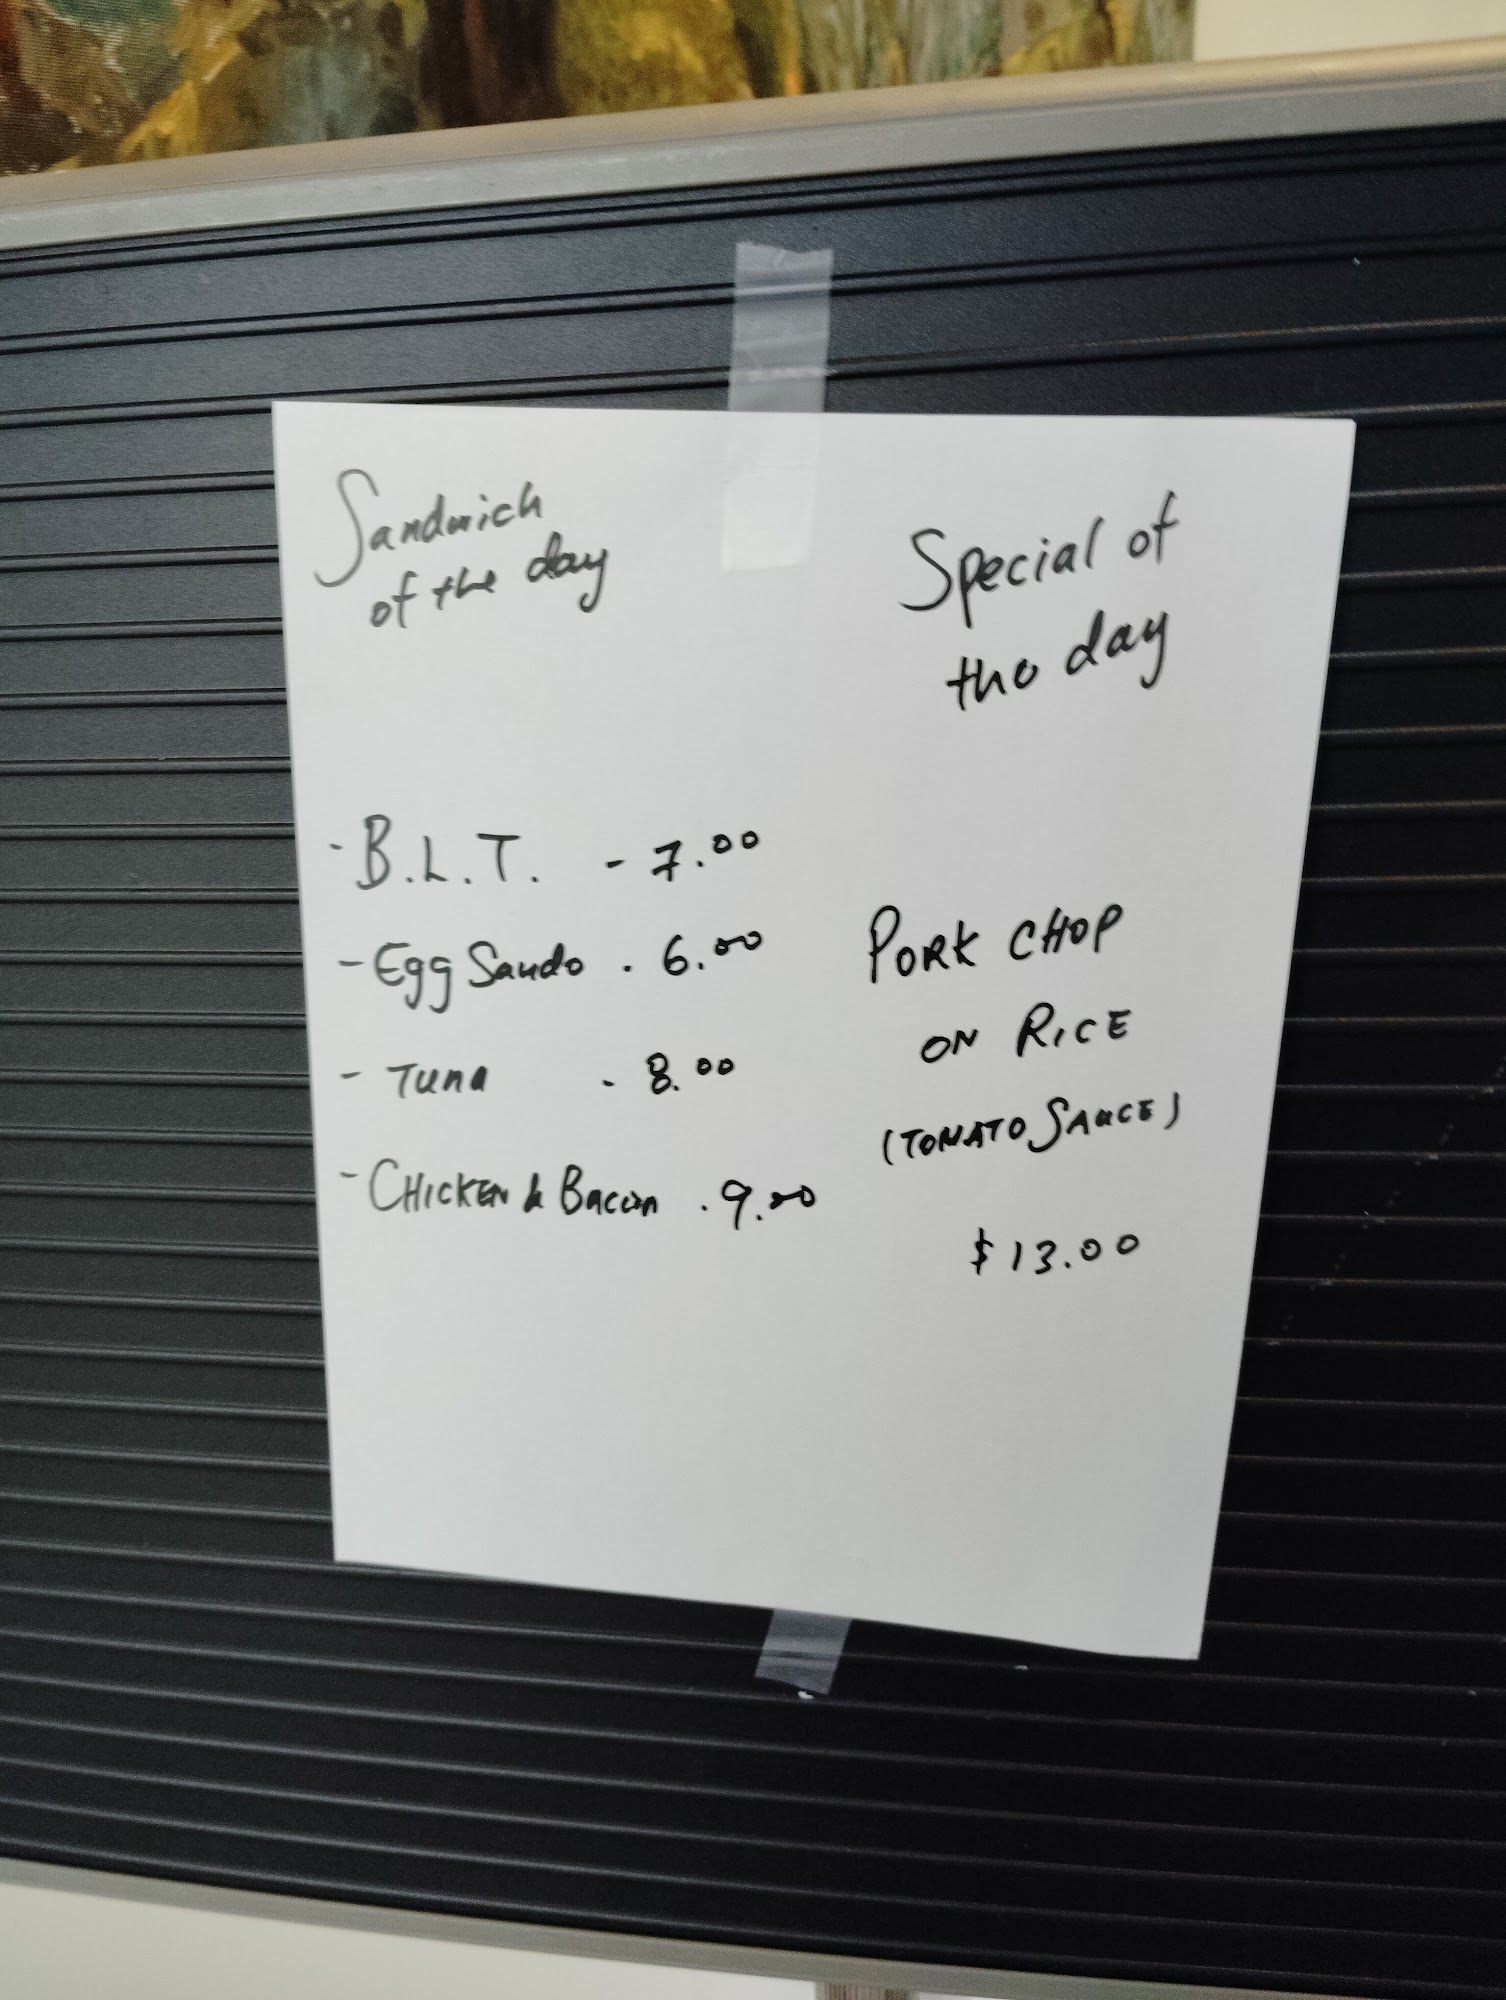 Sandwich
of the day
- B.L.T. - 7.00
- Egg Sando . 6.00
- Tuna . 8.00
- CHICKEN & Bacon . 9.00
Special of
the day
PORK CHOP
ON RICE
(TOMATO SAUCE)
$13.00